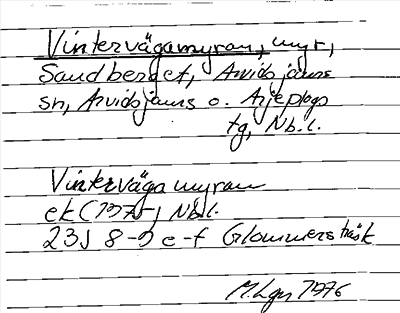 Vintervägamyran, myr,
Sandberget, Arvidsjaurs
sn, Arvidsjaurs o. Arjeplogs
tg, Nb.l.
Vintervägamyran
ek (1975-, Nb.l.
23J 8-9 e-f Glommersträsk
M.Lgn 1976